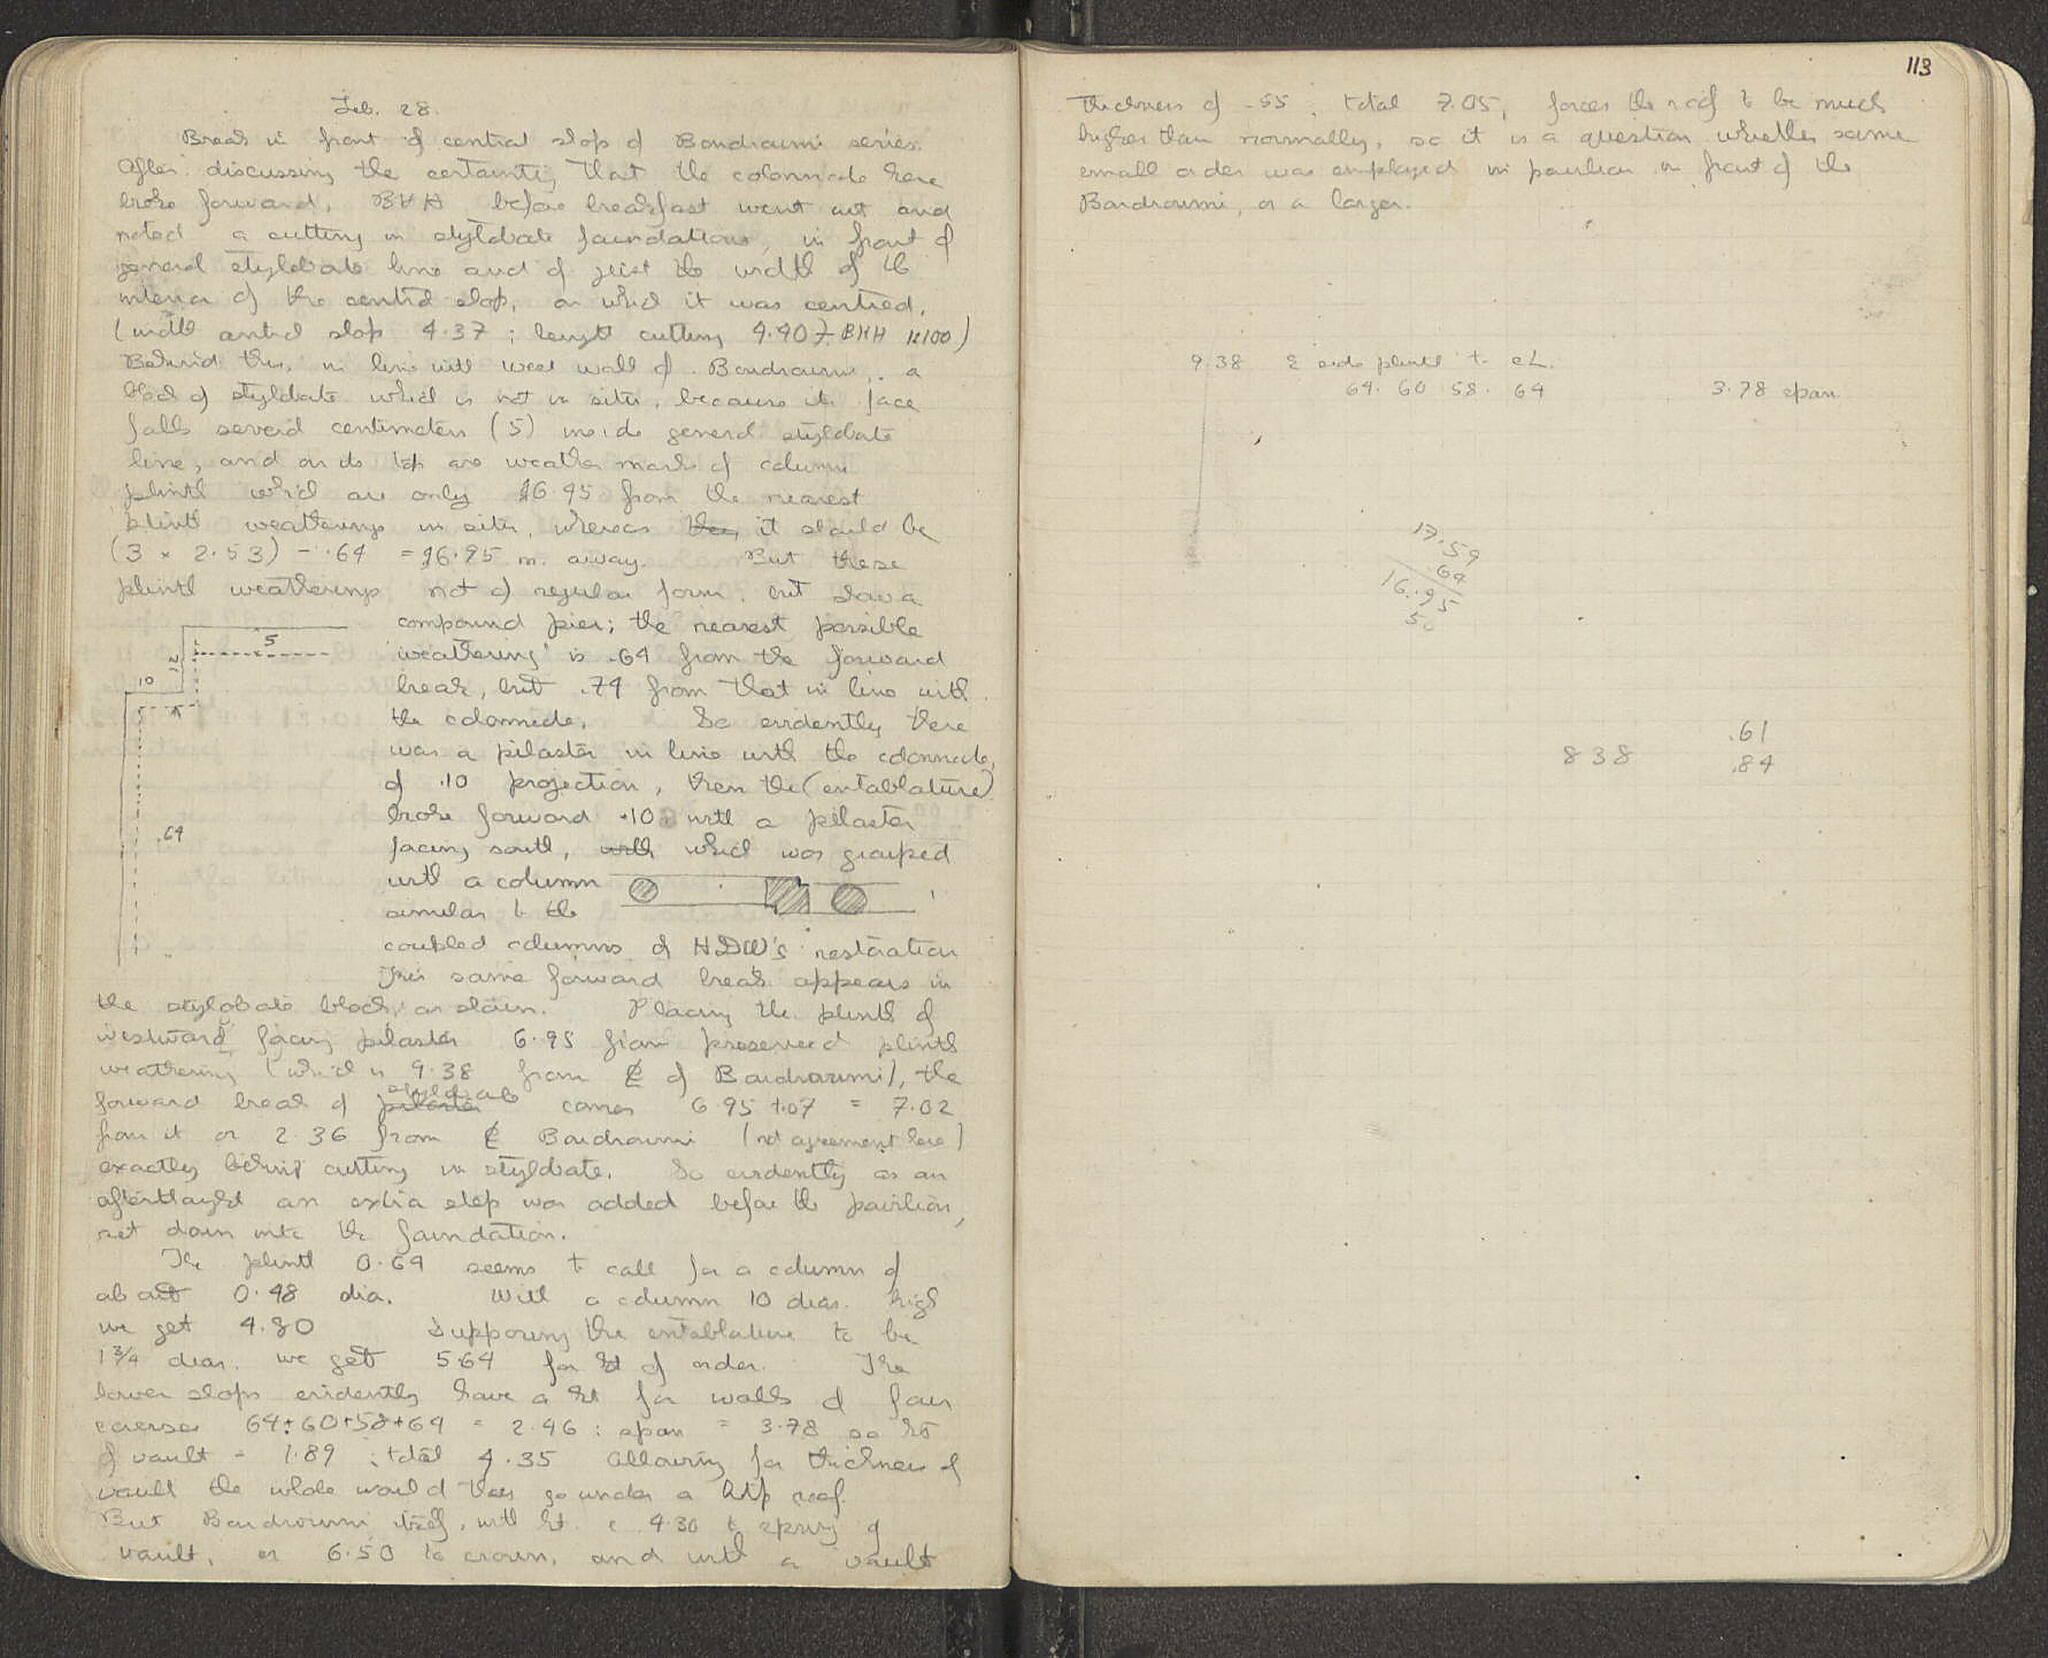 Feb. 28.
Break in front of central shop of Boudroumi series.
After discussing the certainty that the colonnade here
broke forward, BHH before breakfast went out and
noted a cutting in stylobate foundations, in front of
general stylobate line and of just the width of the
interior of the central shop, on which it was centred.
(width central shop 4.37 ; length cutting 4.40 BHH 1:100)
Behind this, in line with west wall of Boudroumi, a
block of stylobate which is not in situ, because its face
falls several centimeters (5) inside general stylobate
line, and on its top are weather marks of column
plinth which are only 16.95 from the nearest
plinth weatherings in situ, whereas they it should be
(3 × 2.53) - .64 = 16.95 m. away. But these
plinth weatherings not of regular form, but show a
compound pier; the nearest possible
weathering is .64 from the forward
break, but .74 from that in line with
the colonnade. So evidently there
was a pilaster in line with the colonnade,
of .10 projection, then the (entablature)
broke forward .10 with a pilaster
facing south, with which was grouped
with a column
similar to the
coupled columns of HDW's restoration
This same forward break appears in
the stylobate block, as shown. Placing the plinth of
westward facing pilaster 6.95 from preserved plinth
weathering (which is 9.38 from ℄ of Boudroumi), the
stylobate
forward break of pilaster comes 6.95 +.07 = 7.02
from it or 2.36 from ℄ Boudroumi (not agreement here)
exactly behind cutting in stylobate. So evidently as an
afterthought an extra step was added before the pavilion,
set down into the foundation.
The plinth 0.64 seems to call for a column of
about 0.48 dia. With a column 10 dias. high
we get 4.80 Supposing the entablature to be
1 3/4 dias. we get 5.64 for ht of order. The
lower shops evidently have a ht for walls of four
courses 64+60+58+64 = 2.46 : span = 3.78 so ht
of vault = 1.89 ; total 4.35 Allowing for thickness of
vault the whole would then go under a roof.
But Boudroumi itself, with ht. c 4.30 to spring of
vault, or 6.50 to crown, and with a vault
5
12
10
.64
113
thickness of .55 , total 7.05, forces the roof to be much
higher than normally, so it is a question whether same
small order was employed in pavilion in front of the
Boudroumi, or a larger.
9.38 E side plinth to cL.
64. 60 58. 64 3.78 span
17.59
.64
16.95
50
.61
838 .84